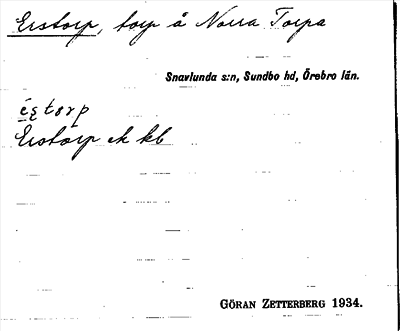 Erstorp, torp å Norra Torpa
Snavlunda s:n, Sundbo hd, Örebro län.
éstorp
Erstorp ek kb
GÖRAN ZETTERBERG 1934.